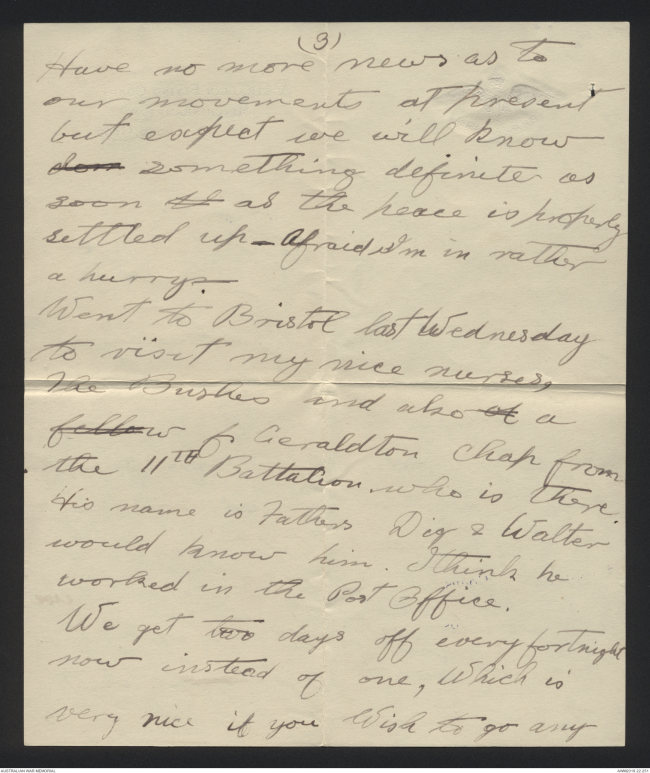 (3)
Have no more news as to
our movements at present
but expect we will know
don something definite as
soon as the peace is properly
settled up - Afraid I'm in rather
a hurry. -
Went to Bristol last Wednesday
to visit my nice nurses,
the Bushes and also of a
fellow Geraldton Chap from
the 11TH Battalion who is there.
His name is Fathers Dig & Walter
would know him. I think he
worked in the Post Office.
We get two days off every fortnight
now instead of one, Which is
very nice if you Wish to go any
AUSTRALIAN WAR MEMORIAL